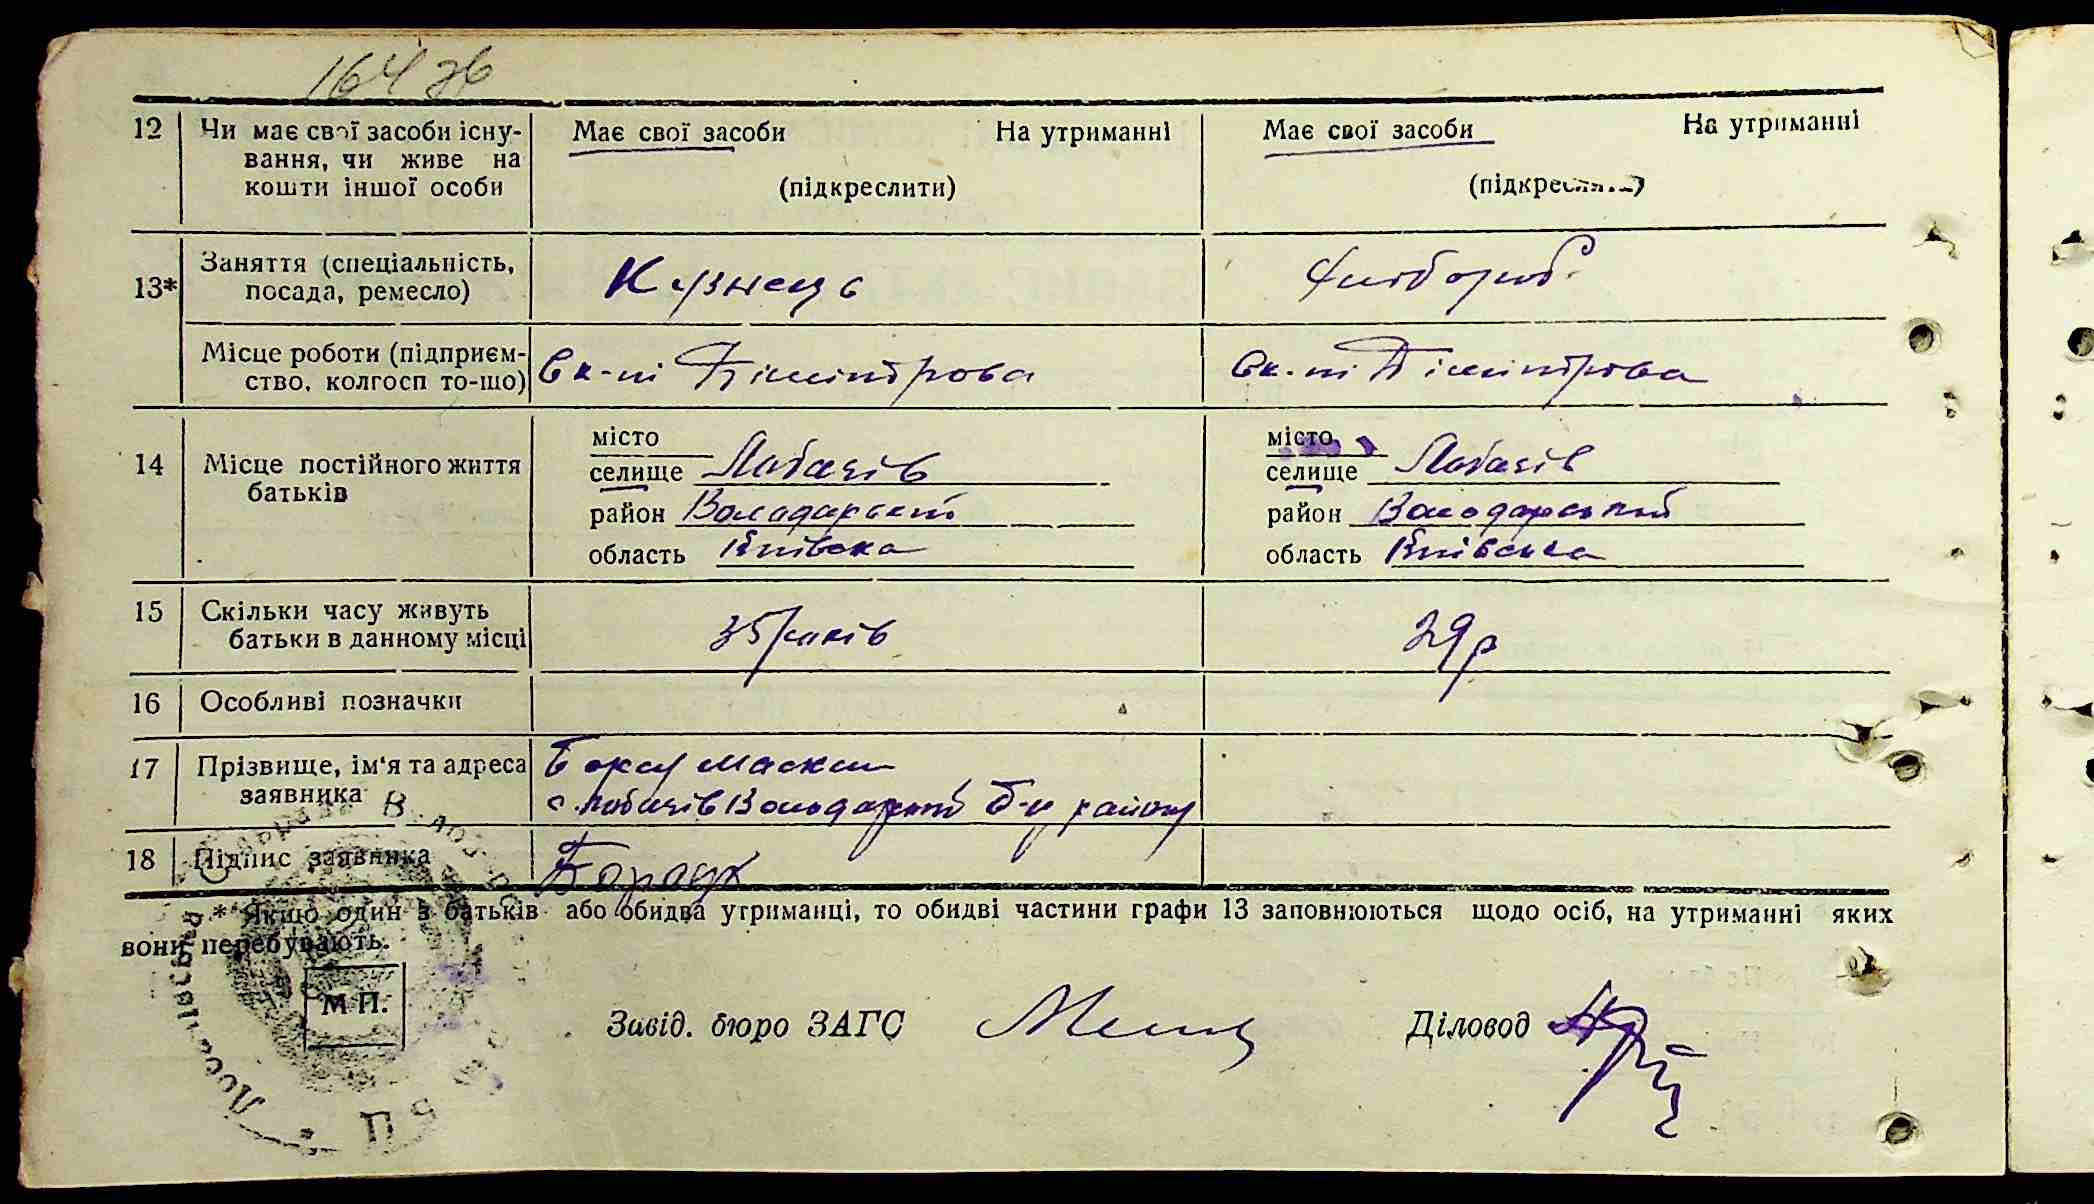 164 зв
12 Чи має свої засоби існу- Має свої засоби На утриманні Має свої засоби На утриманні
вання, чи живе на
кошти іншої особи (підкреслити) (підкреслити)
Заняття (спеціальність, Кузнець
13* посада, ремесло)
Місце роботи (підприєм- в к-пі Дімітрова в к-пі Дімітрова
ство, колгосп то-що)
місто місто
14 Місце постійного життя селище Лобачів селище Лобачів
батьків район Володарський район Володарський
область Київська область Київська
15 Скільки часу живуть 35 років 29 р
батьки в данному місці
16 Особливі позначки
17 Прізвище, ім'я та адреса
заявника с. Лобачів Володарський району
18 Підпис заявника
* Якщо один з батьків або обидва утриманці, то обидві частини графи 13 заповнюються щодо осіб, на утриманні яких
вони перебувають.
М П.
Завід. бюро ЗАГС Діловод